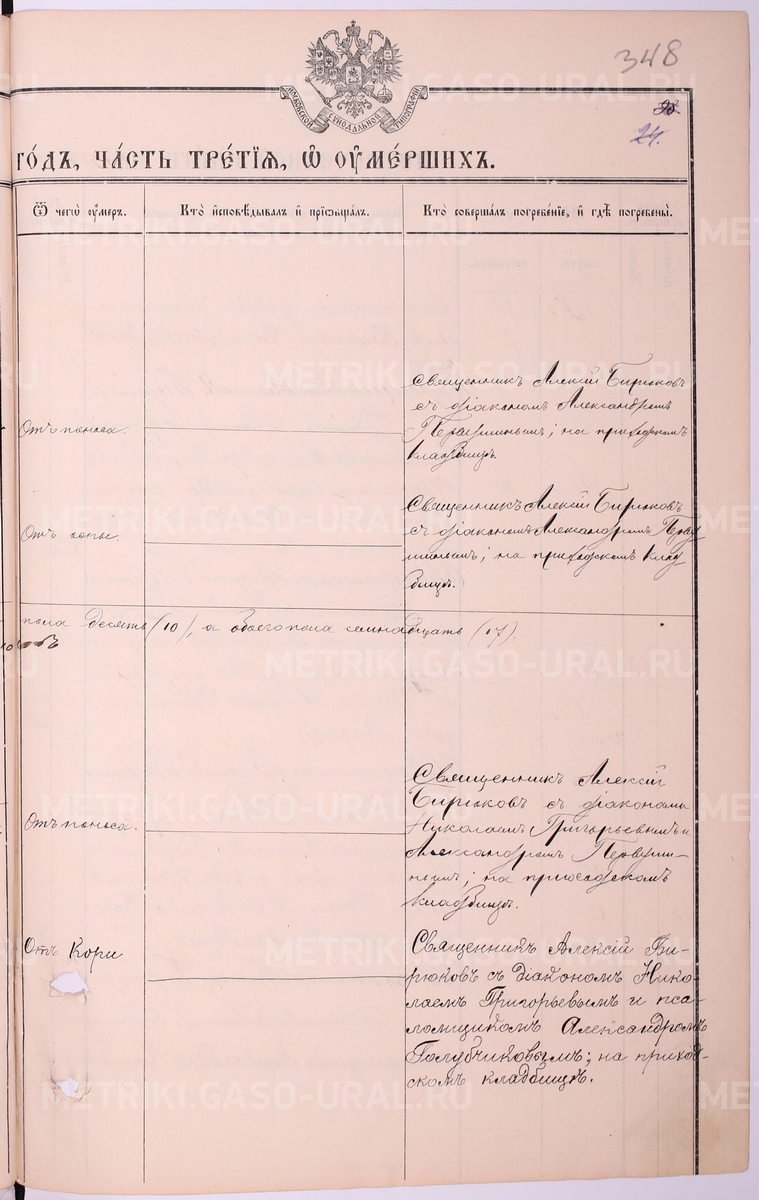 348
24.
МОСКОВСКОЙ СѴНОДАЛЬНОЙ ТИПОГРАФІИ
го́дъ, ча́сть тре́тїѧ, ѡ҆ ᲂу҆ме́ршихъ.
Ѿ чегѡ̀ ᲂу҆́меръ.
Кто̀ и҆сповѣ́дывалъ и҆ прїѡбща́лъ.
Кто̀ соверша́лъ погребе́нїе, и҆ гдѣ̀ погребены̀.
Священникъ Алексій Бирюковъ
съ діакономъ Александромъ
Отъ поноса.
Первушинымъ; на приходскомъ
кладбищѣ.
Священникъ Алексій Бирюковъ
Отъ
съ діакономъ Александромъ Перву
шинымъ; на приходскомъ клад
бищѣ.
пола десять (10), а обоего пола семнадцать (17).
Священникъ Алексій
Бирюковъ съ діаконами
Отъ поноса.
Николаемъ Григорьевымъ и
Александромъ Первуши-
нымъ; на приходскомъ
кладбищѣ.
Отъ Кори
Священникъ Алексій Би-
рюковъ съ діакономъ Нико-
лаемъ Григорьевымъ и пса-
ломщикомъ Александромъ
Голубчиковымъ; на приход-
скомъ кладбищѣ.
METRIKI.GASO-URAL.RU